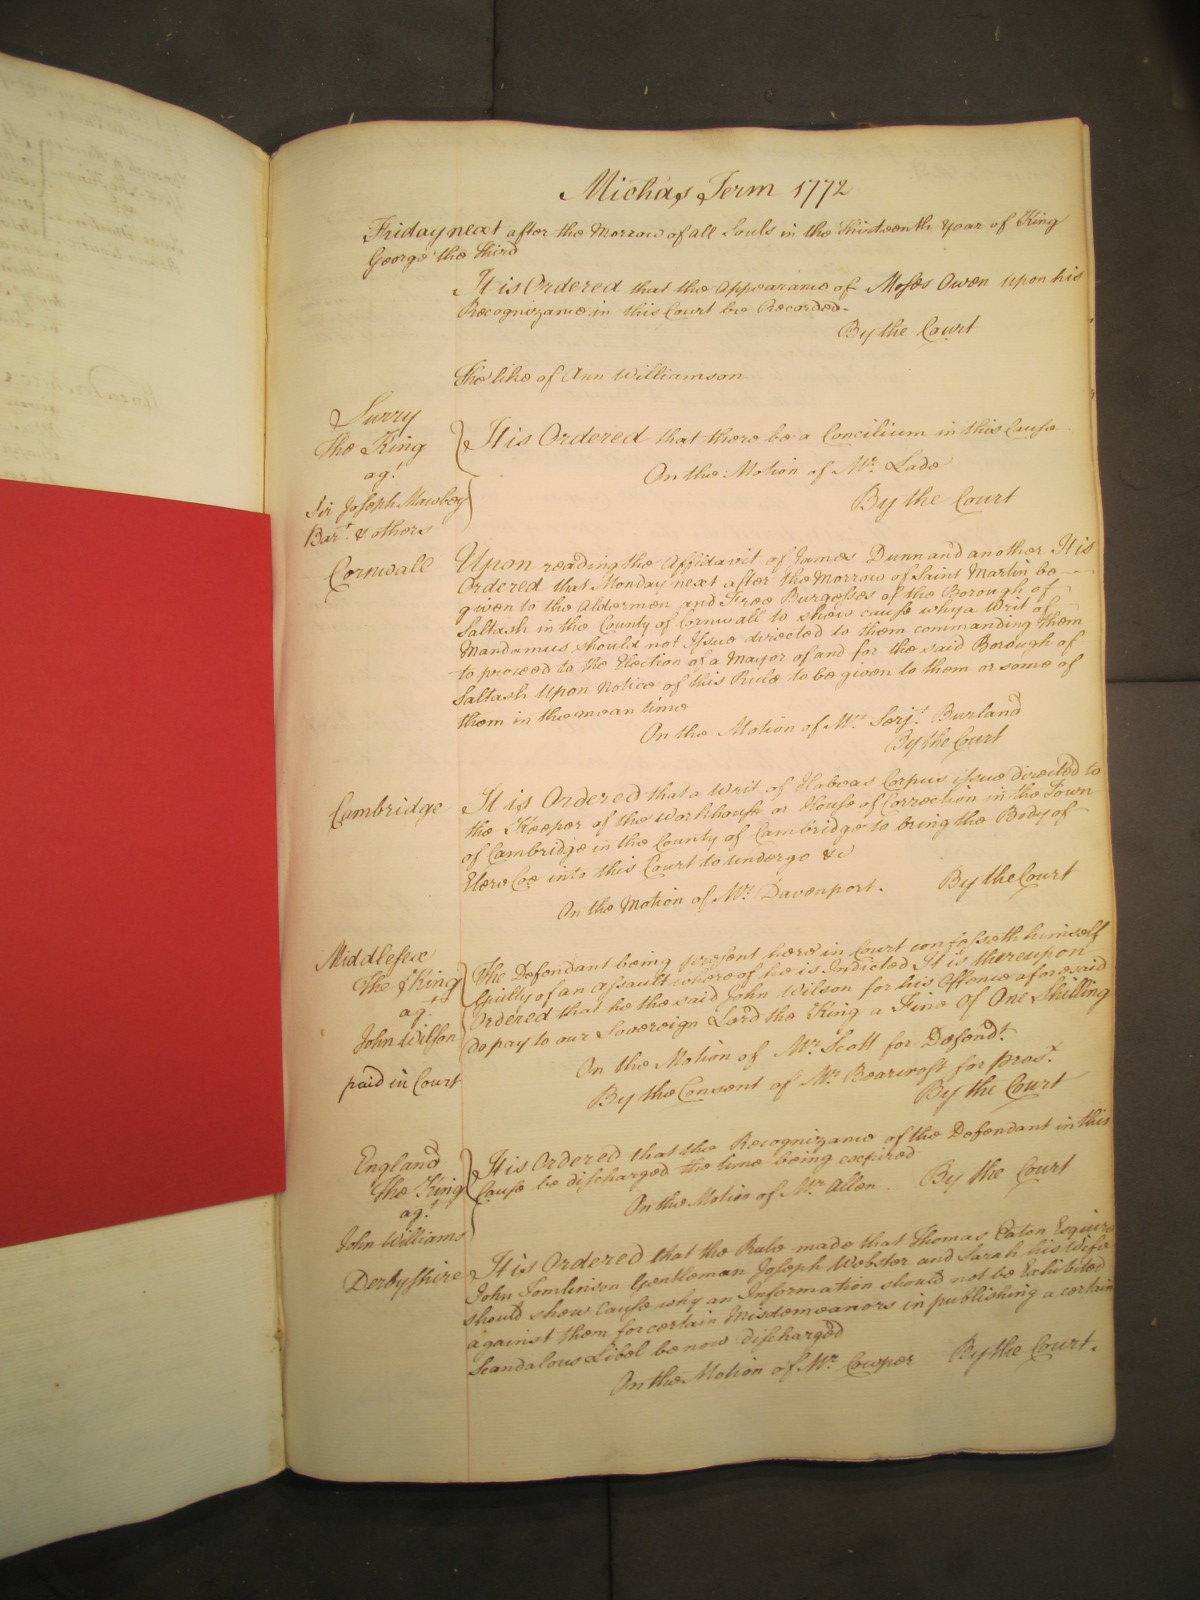 Michās Term 1772
Friday next after the Morrow of all Souls in the thirteenth Year of King
George the Third
It is Ordered that the Appearance of Moses Owen upon his
Recognizance in this Court be Recorded.
By the Court
The like of Ann Williamson
Surry
The King
agt
Sir Joseph Mawbey
Bart & others
It is Ordered that there be a Concilium in this Cause
On the Motion of Mr. Lade
By the Court
Cornwall
Upon reading the Affidavit of James Dunn and another It is
Ordered that Monday next after the Morrow of Saint Martin be
given to the Aldermen and Free Burgesses of the Borough of
Saltash in the County of Cornwall to shew cause why a Writ of
Mandamus should not Issue directed to them commanding them
to proceed to the Election of a Mayor of and for the said Borough of
Saltash Upon Notice of this Rule to be given to them or some of
them in the mean time
On the Motion of Mr. Serjt. Burland
By the Court
Cambridge
It is Ordered that a Writ of Habeas Corpus issue directed to
the Keeper of the Workhouse or House of Correction in the Town
of Cambridge in the County of Cambridge to bring the Body of
Coe into this Court to undergo &c
On the Motion of Mr. Davenport. By the Court
Middlesex
The King
agt
John Wilson
paid in Court
The Defendant being present here in Court confesseth himself
Guilty of an Assault whereof he is Indicted It is thereupon
Ordered that he the said John Wilson for his Offence aforesaid
do pay to our Sovereign Lord the King a Fine Of One Shilling
On the Motion of Mr. Scott for Defendt.
By the Consent of Mr. Bearcroft for Prosr.
By the Court
England
The King
agt
John Williams
It is Ordered that the Recognizance of the Defendant in this
Cause be discharged the time being expired
On the Motion of Mr. Allen. By the Court
Derbyshire
It is Ordered that the Rule made that Thomas Eaton Esquire
John Tomlinson Gentleman Joseph Webster and Sarah his Wife
should shew cause why an Information should not be Exhibited
against them for certain Misdemeanors in publishing a certain
Scandalous Libel be now discharged
On the Motion of Mr. Cowper By the Court.